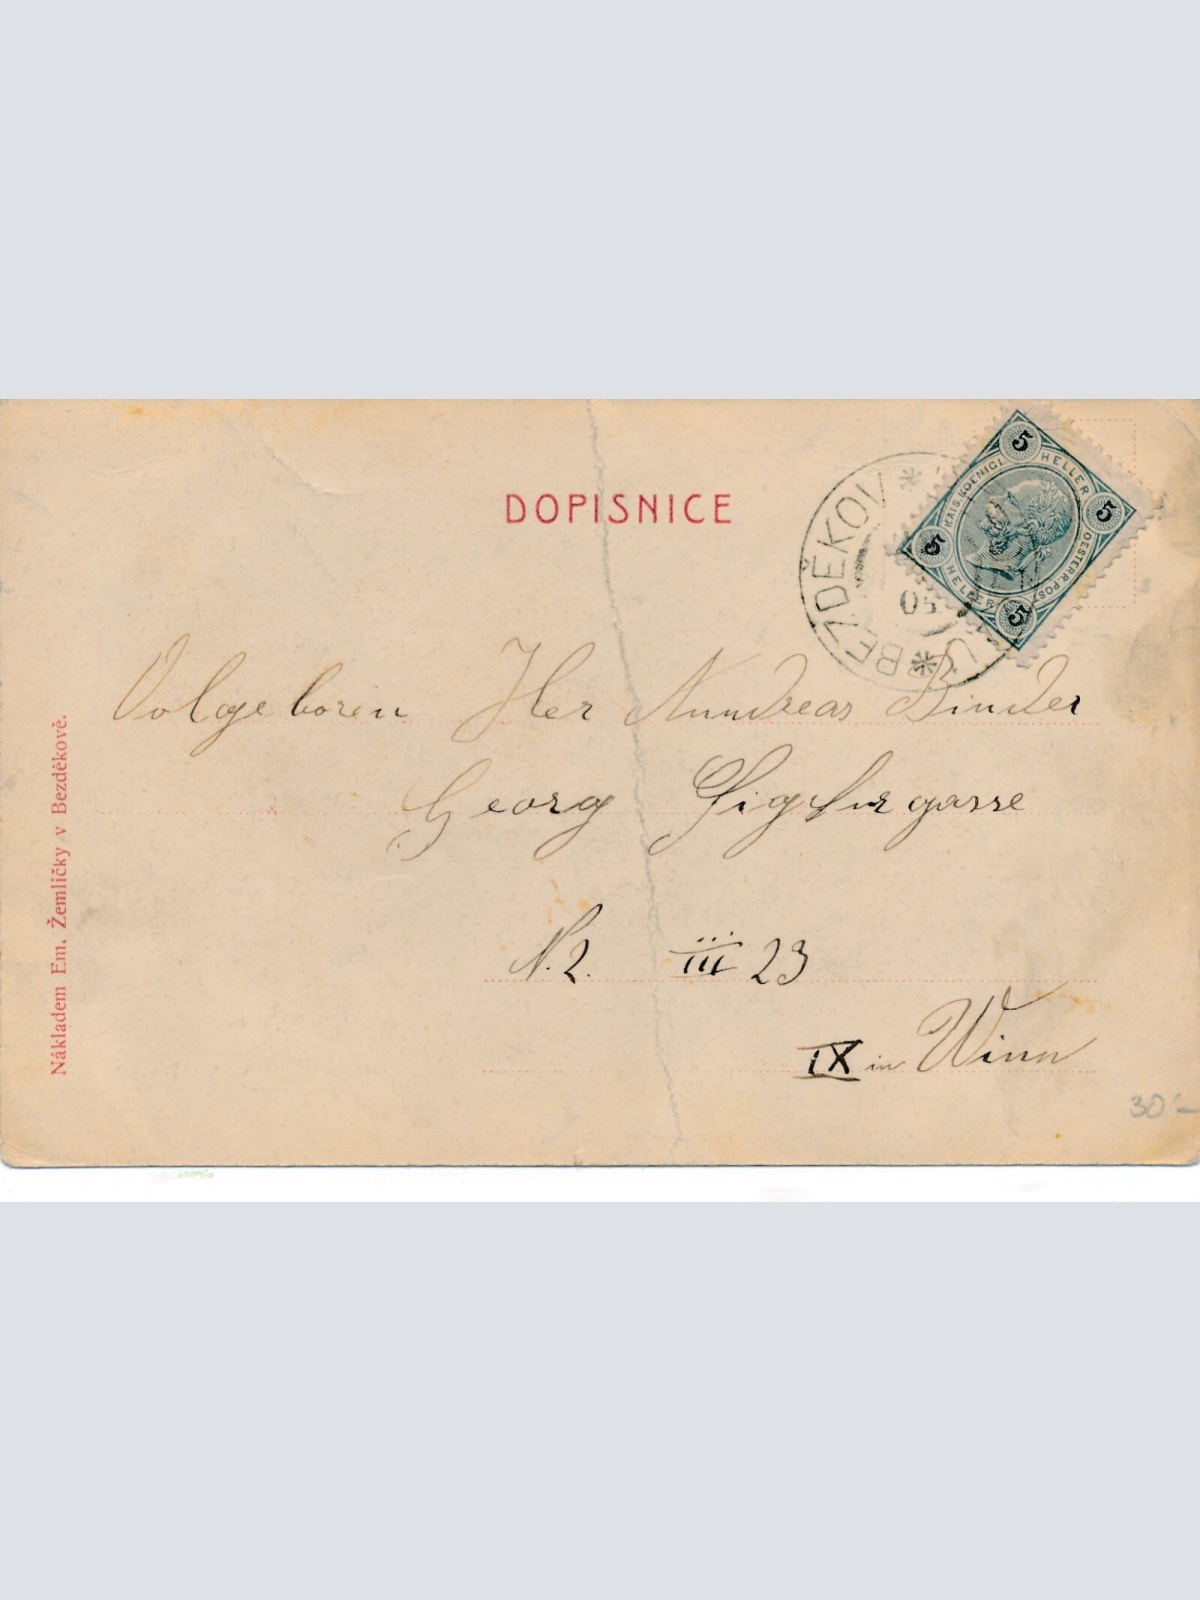 DOPISNICE
BEZDĚKOV
05
5 5 5 5
KAIS. KOENIGL. OESTERR. POST
HELLER HELLER
Volgeboren Her Anndreas Binder
Georg Siglurgasse
N. 2. III 23
IX in Winn
30'-
Nákladem Em. Žemličky v Bezděkově.